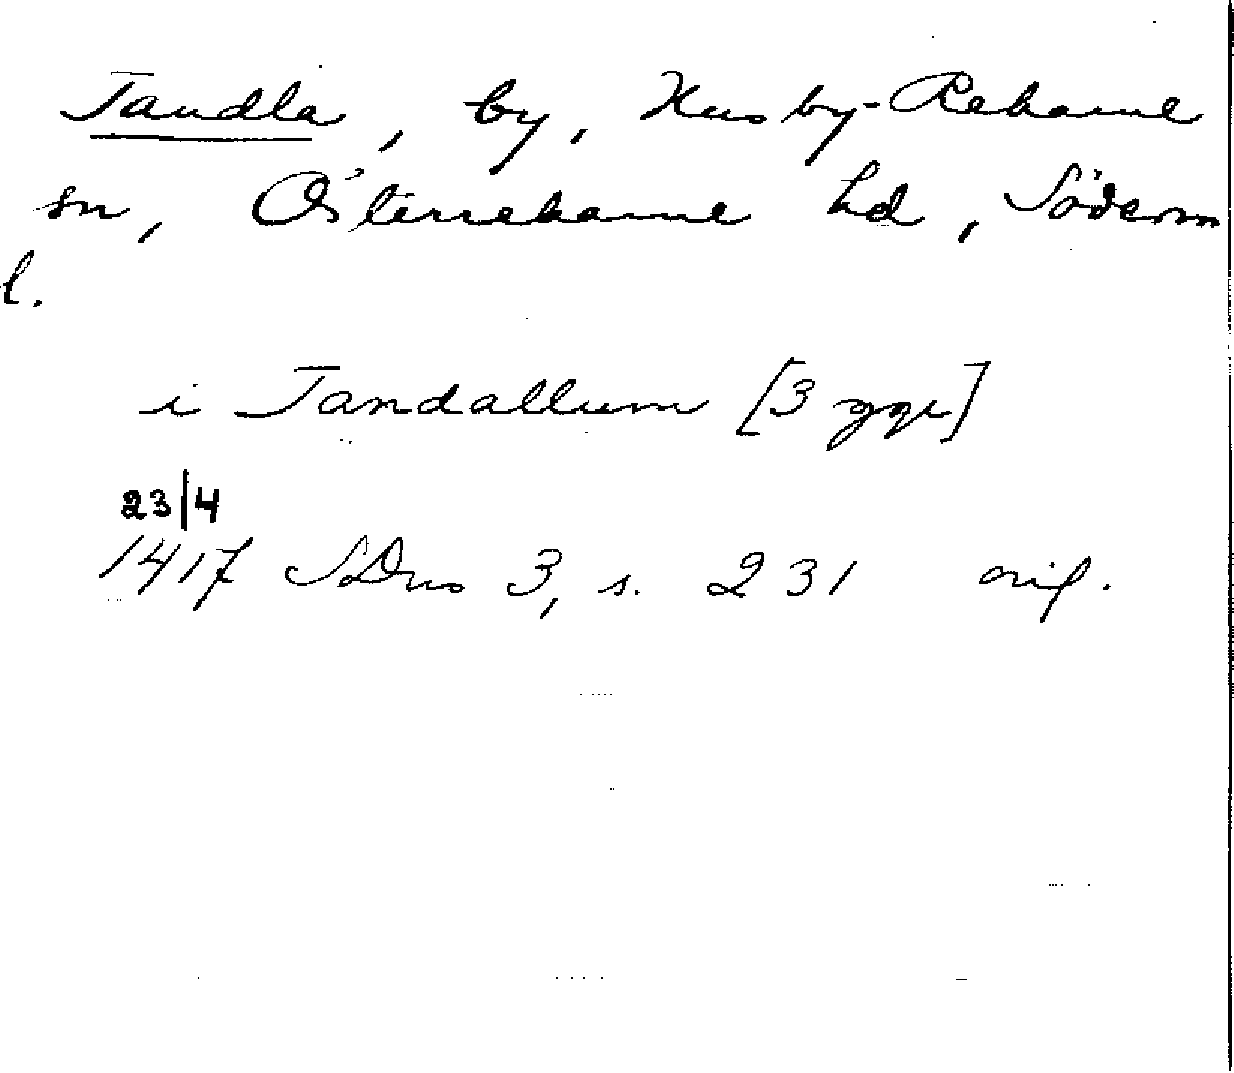 Tandla, by, Husby-Rekarne
sn, Österrekarne hd, Söderm
l.
i Tandallum [3 ggr]
23/4
1417 SDns 3, s. 231 orig.